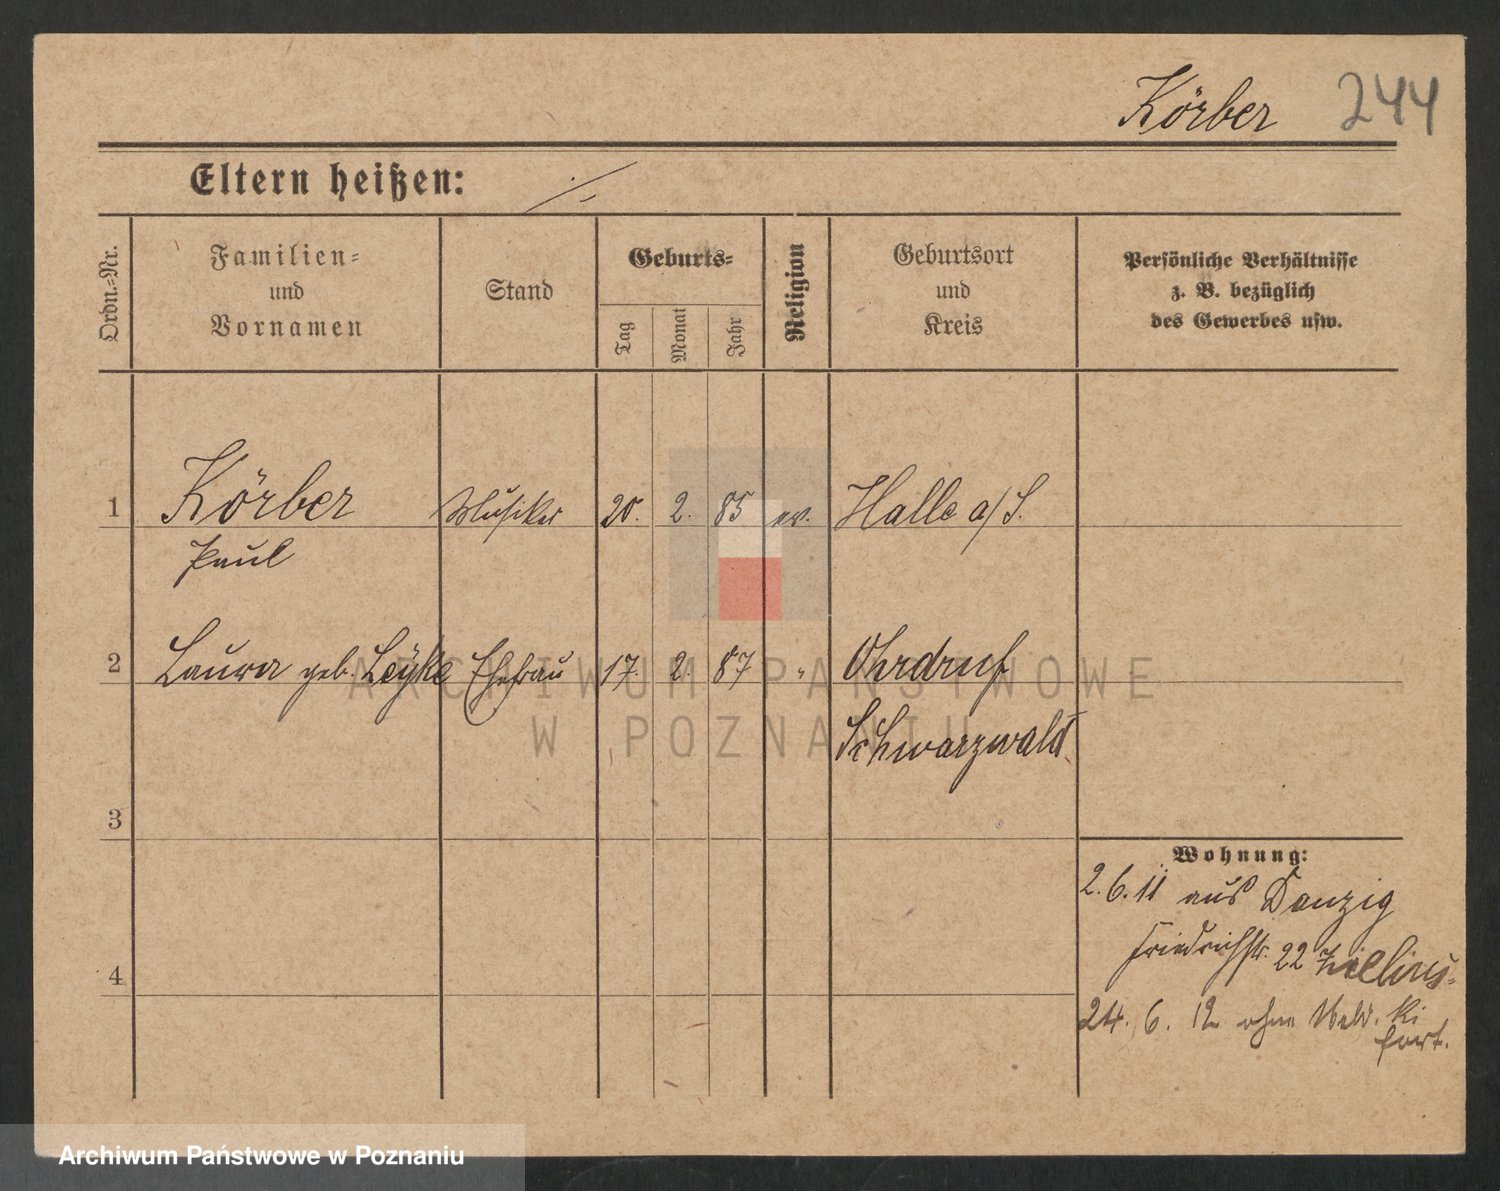 Körber 244
Eltern heißen: ·/-
Ordn.-Nr.
Familien-
und
Vornamen
Stand
Geburts-
Tag
Monat
Jahr
Religion
Geburtsort
und
Kreis
Persönliche Verhältnisse
z. B. bezüglich
des Gewerbes usw.
1 Körber Musiker 20. 2. 85 ev. Halle a/S.
Paul
2 Laura geb. Leyke Ehefrau 17. 2. 87 " Ohrdruf
Schwarzwald
3
4
Wohnung:
2.6.11 aus Danzig
Friedrichstr. 22 Zielins-
24. 6. 12 ohne Meld. ki
fort.
ARCHIWUM PAŃSTWOWE
W POZNANIU
Archiwum Państwowe w Poznaniu